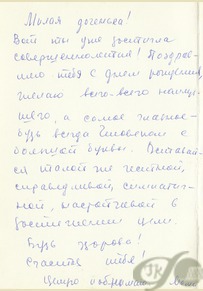 Милая доченька!
Вот ты уже достигла
совершеннолетия! Поздрав-
ляю тебя с днем рождения,
желаю всего-всего наилуч-
шего, а самое главное -
будь всегда Человеком с
большой буквы. Оставай-
ся такой же честной,
справедливой, симпатич-
ной, настойчивой в
достижении цели.
Будь здорова!
Счастья тебе!
Щиро поздравляю